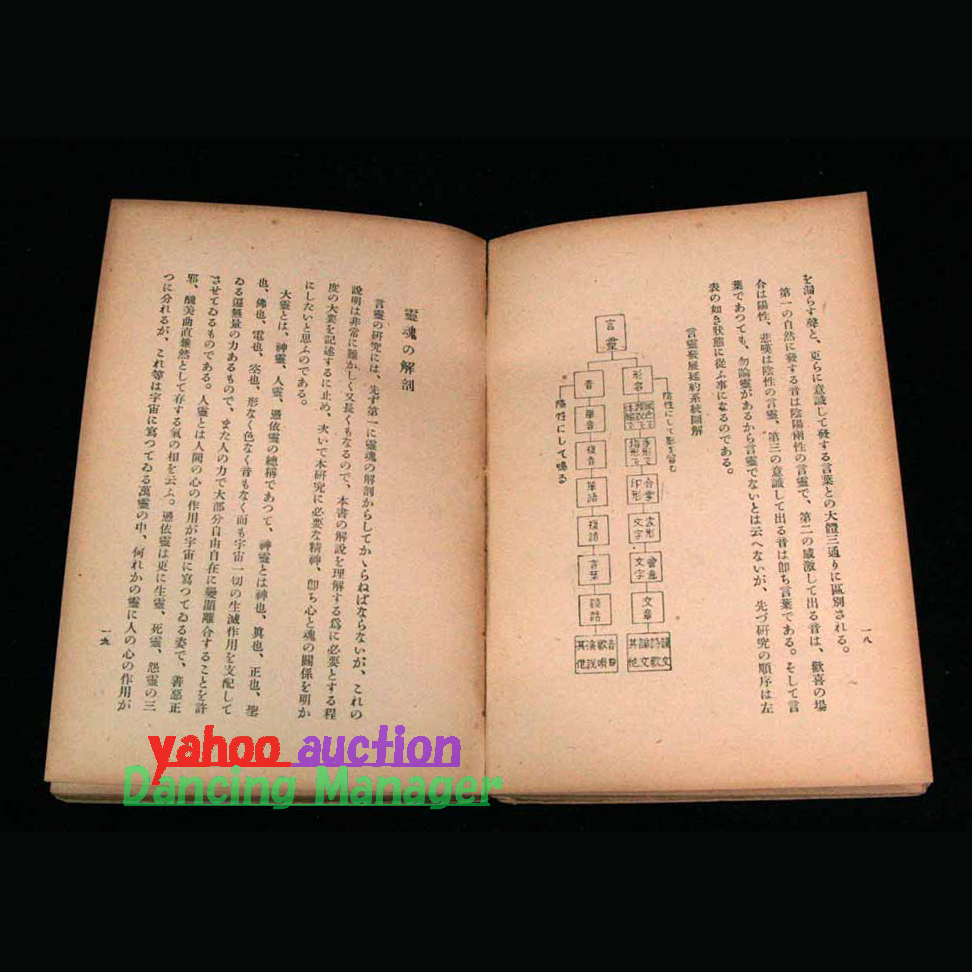 を漏らす聲と、更らに意識して發する言葉との大體三通りに區別される。
第一の自然に發する音は陰陽兩性の言靈で、第二の感激して出る音は、歡喜の場
合は陽性、悲嘆は陰性の言靈、第三の意識して出る音は卽ち言葉である。そして言
葉であつても、勿論靈があるから言靈でないとは云へないが、先づ硏究の順序は左
表の如き狀態に從ふ事になるのである。
言靈發展延約系統圖解
陰性にして影を宿む
言靈
形容
合掌
印形
象形
文字
會意
文字
文章
詩歌
論文
其他
音
單音
複音
單語
複語
言葉
談話
音曲
歌唄
演說
其他
陽性にして鳴る
一八
靈魂の解剖
言靈の硏究には、先ず第一に靈魂の解剖からしてかゝらねばならないが、これの
說明は非常に難かしく又長くもなるので、本書の解說を理解する爲に必要とする程
度の大要を記述するに止め、次いで本硏究に必要な精神、卽ち心と魂の關係を明か
にしたいと思ふのである。
大靈とは、神靈、人靈、憑依靈の總稱であつて、神靈とは神也、眞也、正也、聖
也、佛也、電也、空也、形なく色なく音もなく而も宇宙一切の生滅作用を支配して
ゐる道無量の力あるもので、また人の力で大部分自由自在に變顯離合することを許
させてゐるものである。人靈とは人間の心の作用が宇宙に寫つてゐる姿で、善惡正
邪、醜美曲直雖然として存する氣の相を云ふ。憑依靈は更に生靈、死靈、怨靈の三
つに分れるが、これ等は宇宙に寫つてゐる萬靈の中、何れかの靈に人の心の作用が
一九
yahoo auction
Dancing Manager